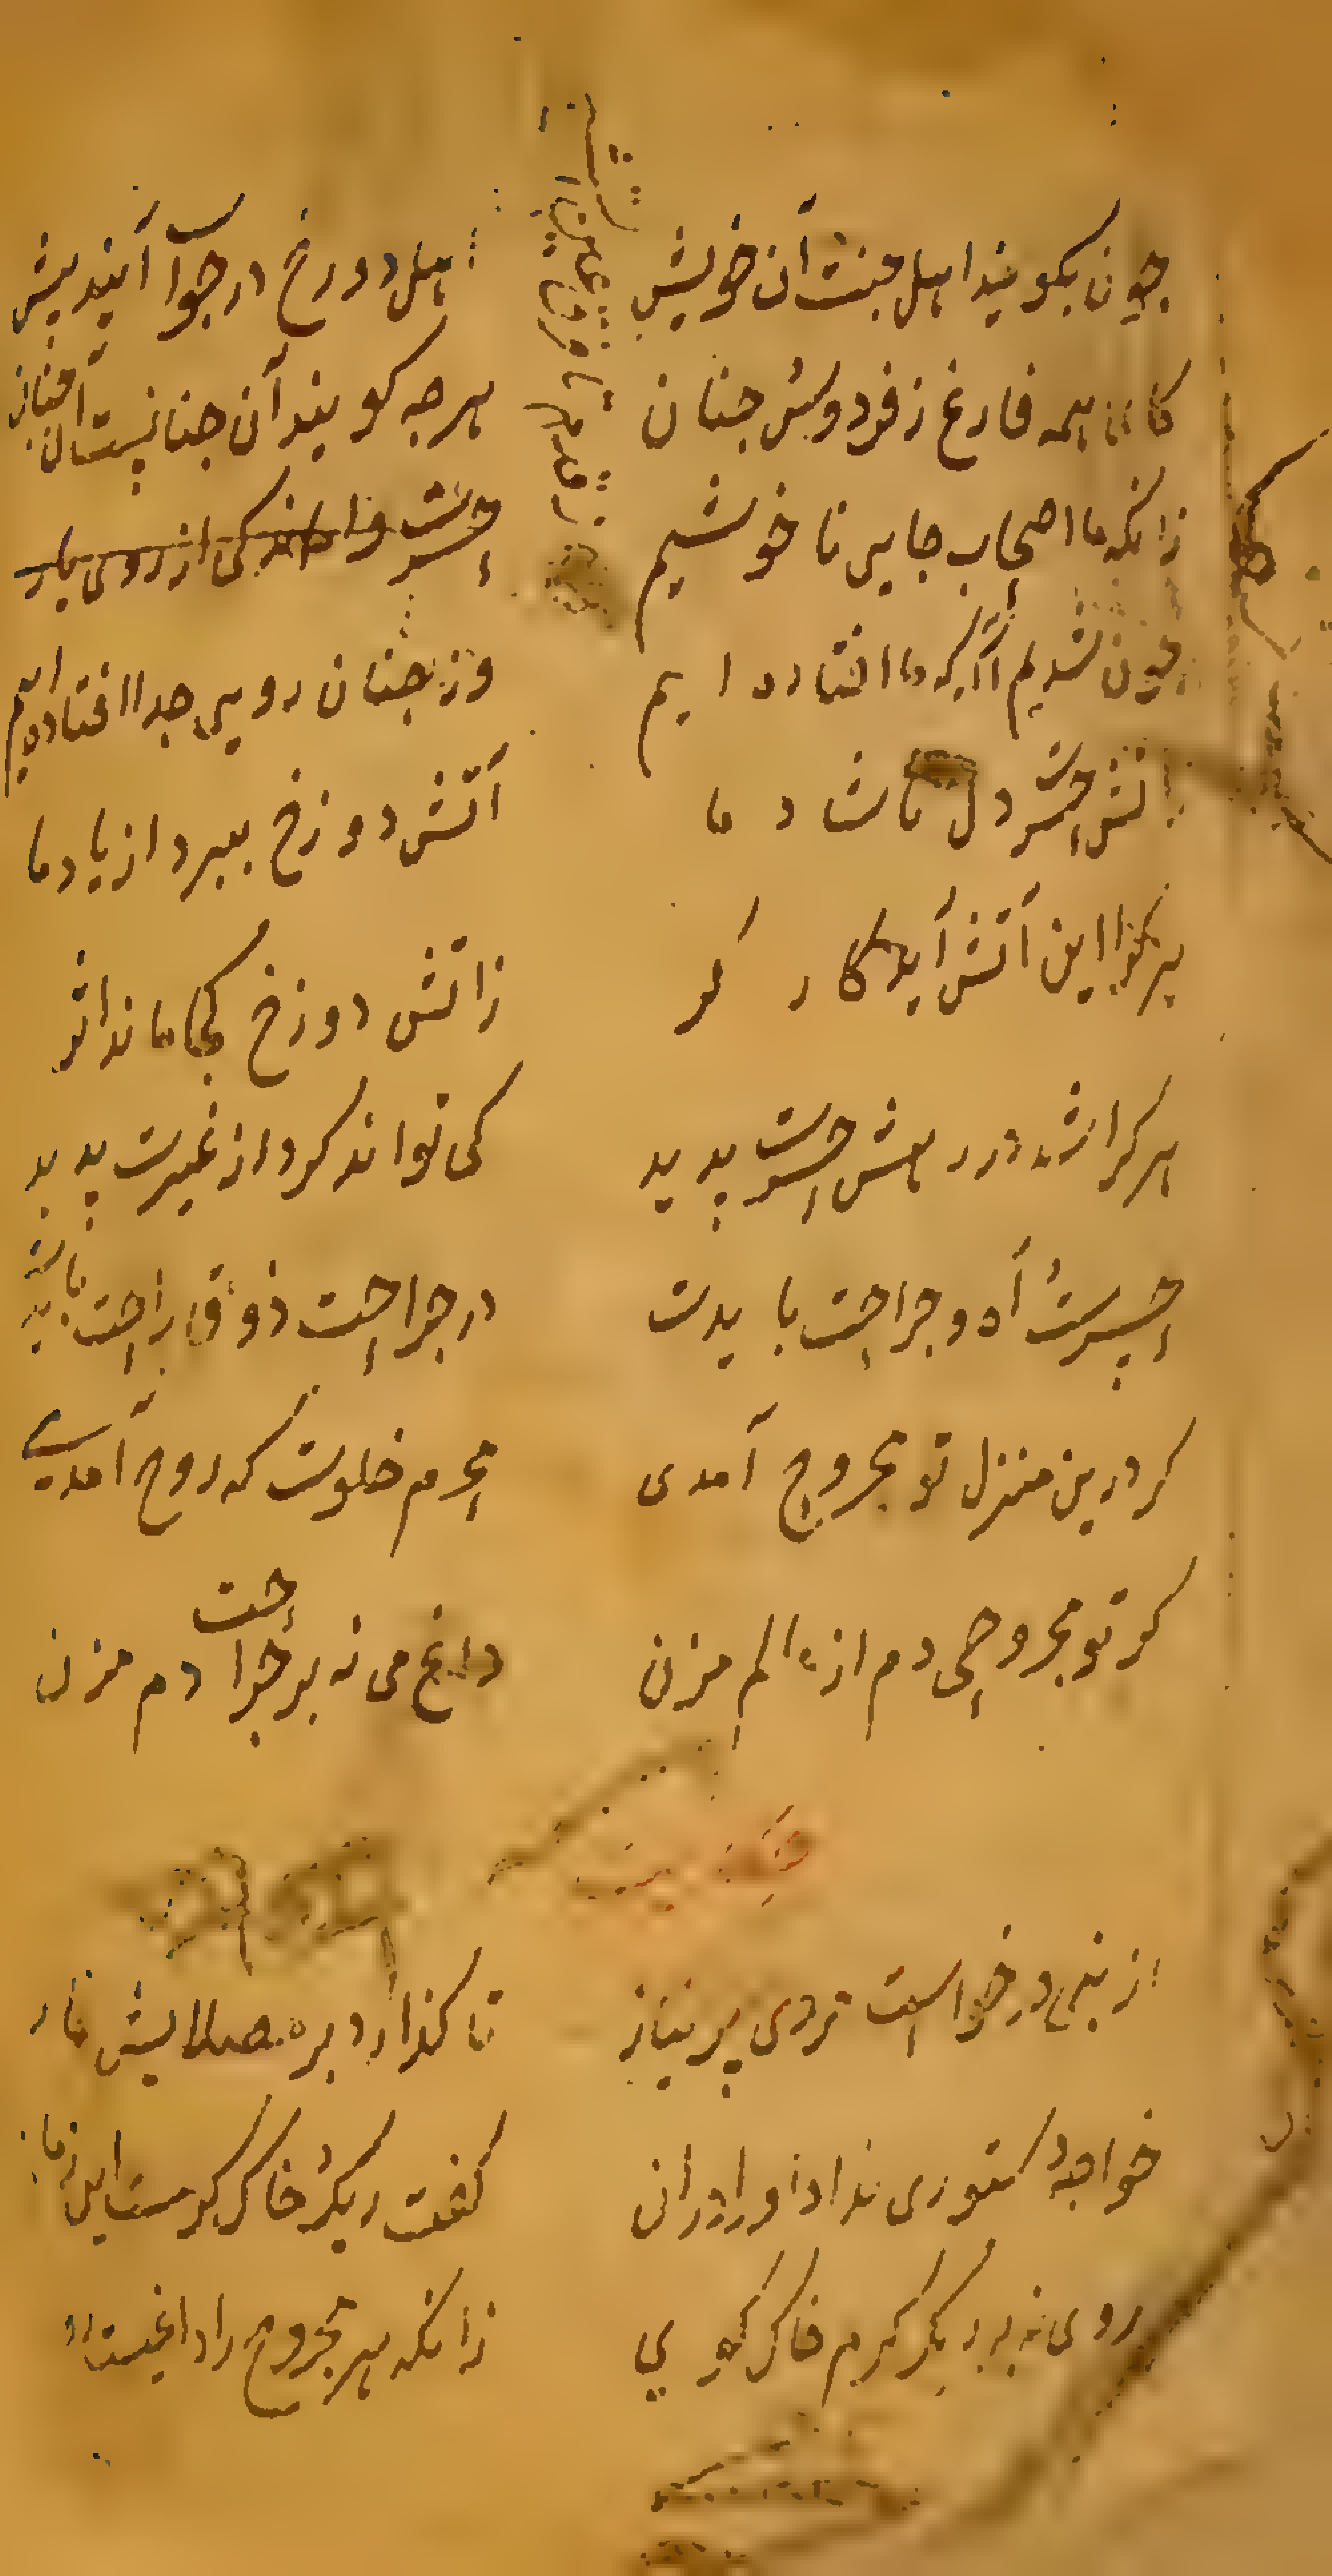 چون بکویند اهل جنت آن خویش اهل دوزخ در جوآ آیند پیش
کای همه فارغ ز فردوس جنان هرجه کویند آن جنانیست آن جنان
زانکه ما اصحاب جای ناخوشیم حسرت واماندکی از روی یار
چون شدیم آکه که ما افتاده ایم وز جنان رویی جدا افتاده ایم
آتش حسرت دل ناشاد ما آتش دوزخ ببرد از یاد ما
هر کجا این آتش آید کار کر زاتش دوزخ کجا ماند اثر
هر کرا شد در رهش حسرت پدید کی تواند کرد از غیرت پدید
حسرت آه و جراحت بایدت در جراحت ذوق راحت بایدت
کر درین منزل تو مجروح آمدی محرم خلوت که روح آمدی
کر تو مجروحی دم از عالم مزن داغ می نه بر جراحت دم مزن
از نبی درخواست مردی پر نیاز تا کذارد بر مصلایش نماز
خواجه دستوری نداد او را در آن کفت ریک و خاک کرمست این زمان
روی نه بر ریک کرم و خاک کوی زانکه هر مجروح را داغیست